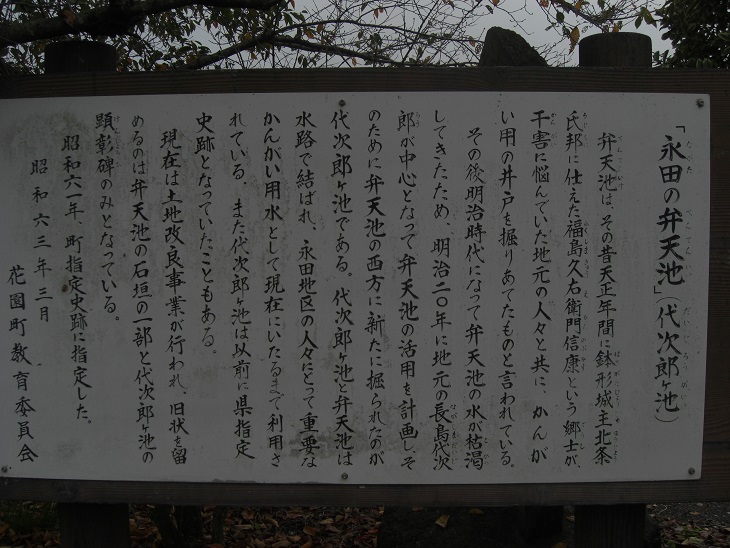 「永田の弁天池」(代次郎ヶ池)
弁天池は、その昔天正年間に鉢形城主北条
氏邦に仕えた福島久右衛門信康という郷士が、
干害に悩んでいた地元の人々と共に、かんが
い用の井戸を掘りあてたものと言われている。
その後明治時代になって弁天池の水が枯渇
してきたため、明治二〇年に地元の長島代次
郎が中心となって弁天池の活用を計画し、そ
のために弁天池の西方に新たに掘られたのが
代次郎ヶ池である。代次郎ヶ池と弁天池は
水路で結ばれ、永田地区の人々にとって重要な
かんがい用水として現在にいたるまで利用さ
れている。また代次郎ヶ池は以前に県指定
史跡となっていたこともある。
現在は土地改良事業が行われ、旧状を留
めるのは弁天池の石垣の一部と代次郎ヶ池の
顕彰碑のみとなっている。
昭和六一年、町指定史跡に指定した。
昭和六三年三月
花園町教育委員会